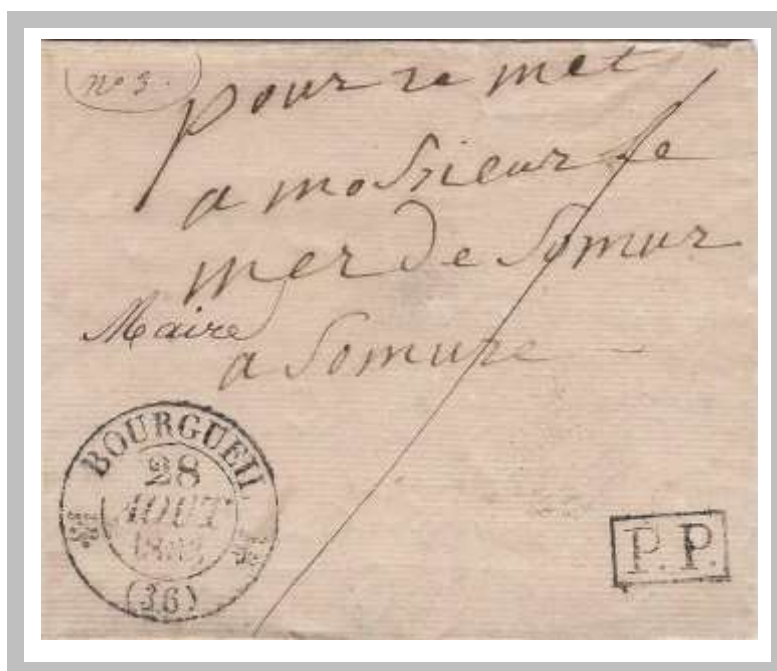 no 3.
pour remet
a mosieur le
mer de Somur
Maire
a Somure
BOURGUEIL
28
AOUT
(36)
P.P.